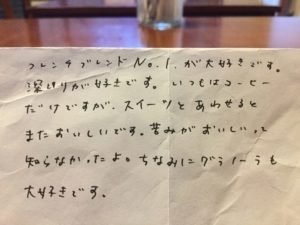 フレンチブレンドNo.1.が大好きです。
深けりが好きです。いつもはコーヒー
だけですが、スイーツとあわせると
またおいしいです。苦みがおいしいって
知らなかったよ。ちなみにグラノーラも
大好きです。